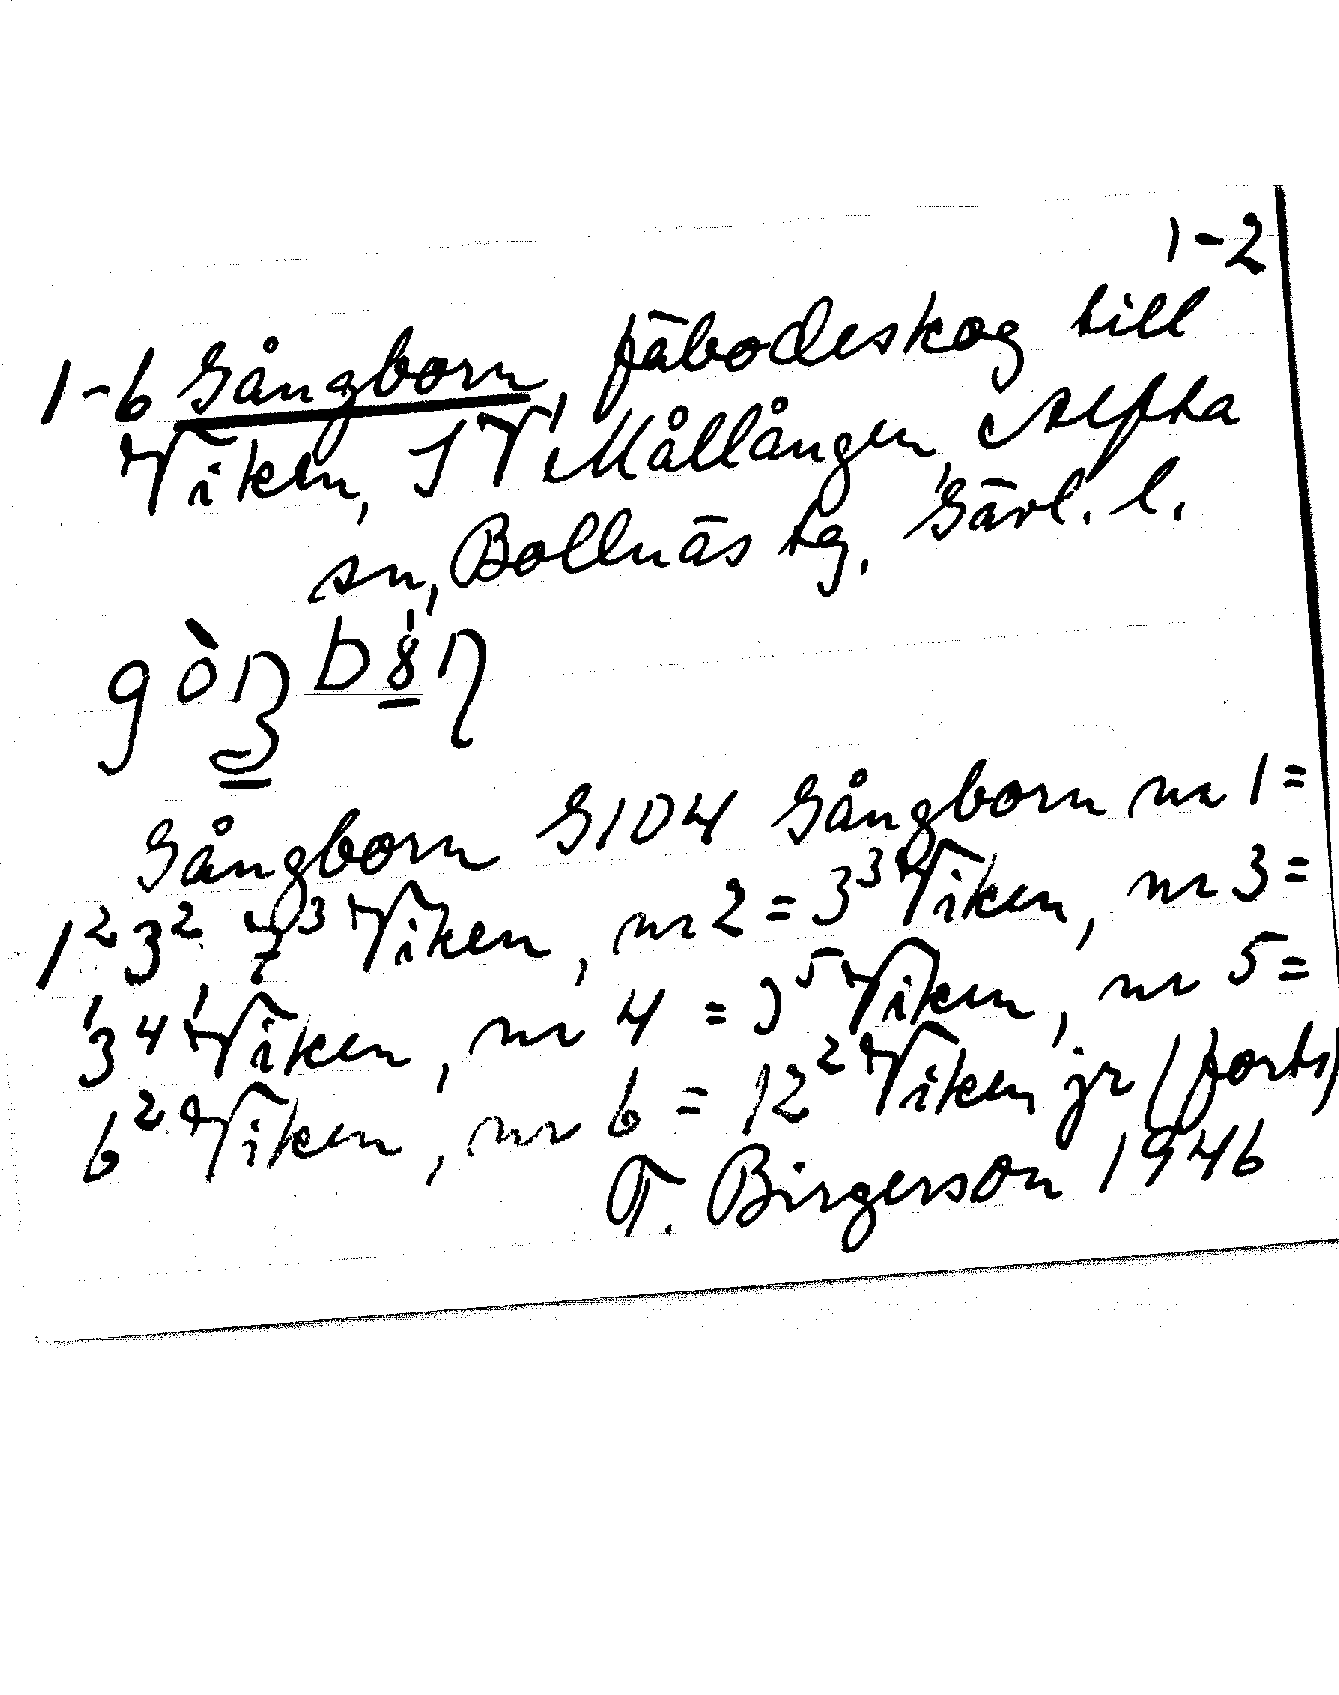 1-2
1-6 Gångborn, fäbodeskog till
Viken, SV Mållången, Alfta
sn, Bollnäs tg. Gävl. l.
Gångborn G104 Gångborn nr 1 =
1² 3² 7³ Viken, nr 2 = 3³ Viken, nr 3 =
3⁴ Viken, nr 4 = 3⁵ Viken, nr 5 =
6² Viken, nr 6 = 12² Viken jr (forts)
T. Birgerson 1946